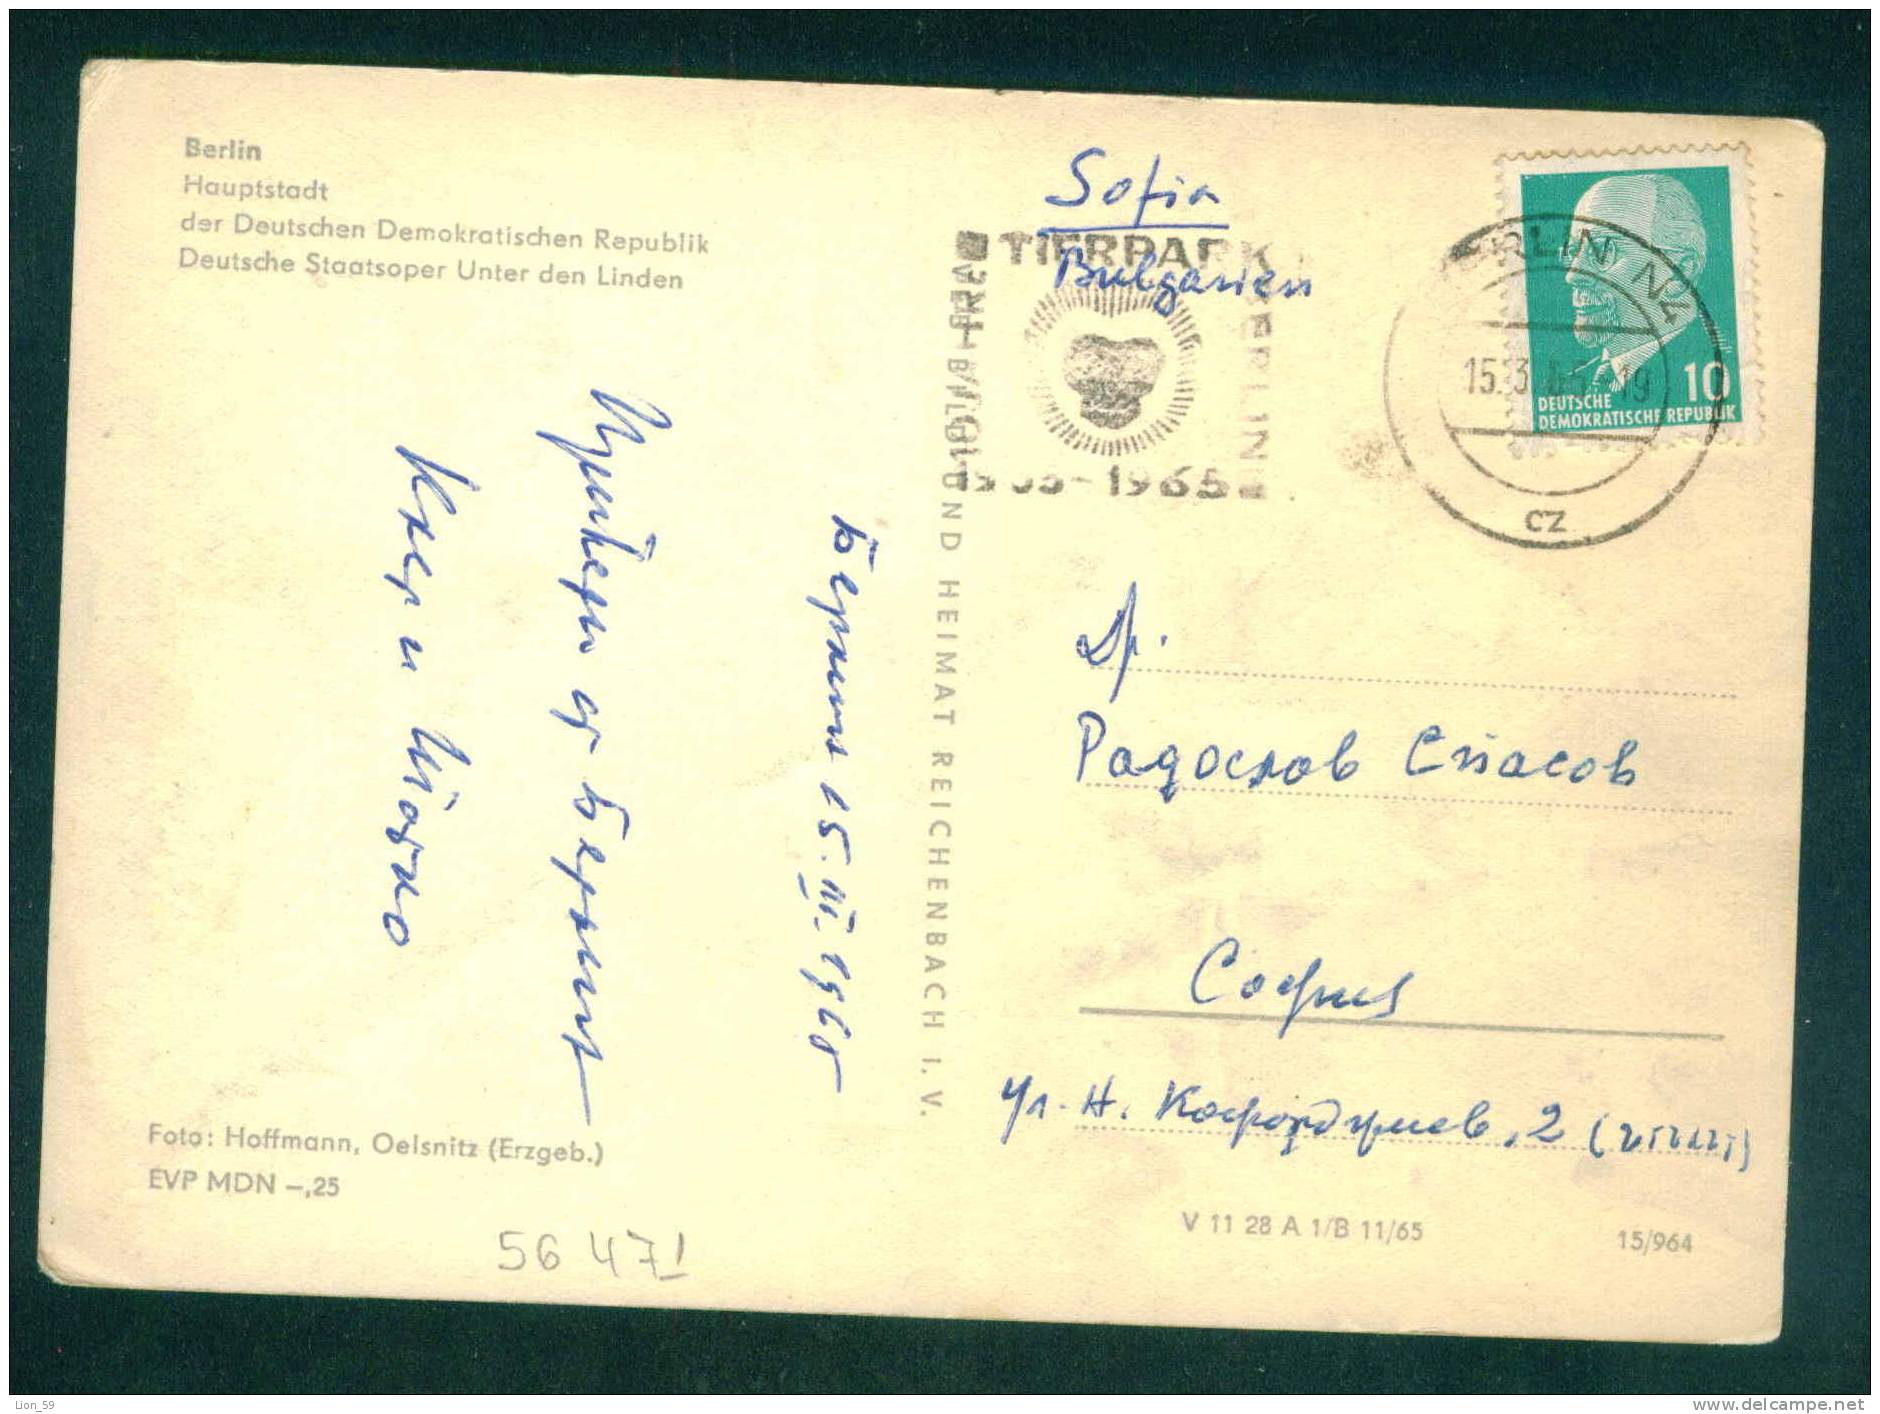 Berlin
Hauptstadt
der Deutschen Demokratischen Republik
Deutsche Staatsoper Unter den Linden
Sofia
Bulgarien
TIERPARK
BERLIN
1955-1965
BERLIN N4
15.3.65-19
cz
10
DEUTSCHE
DEMOKRATISCHE REPUBLIK
VEB BILD UND HEIMAT REICHENBACH I. V.
Берлин 15.III.1965
Привети от Берлин
и
Др.
Радослав Спасов
София
ул. Н. 2
Foto: Hoffmann, Oelsnitz (Erzgeb.)
EVP MDN –,25
56 471
V 11 28 A 1/B 11/65
15/964
Lion_59
www.delcampe.net